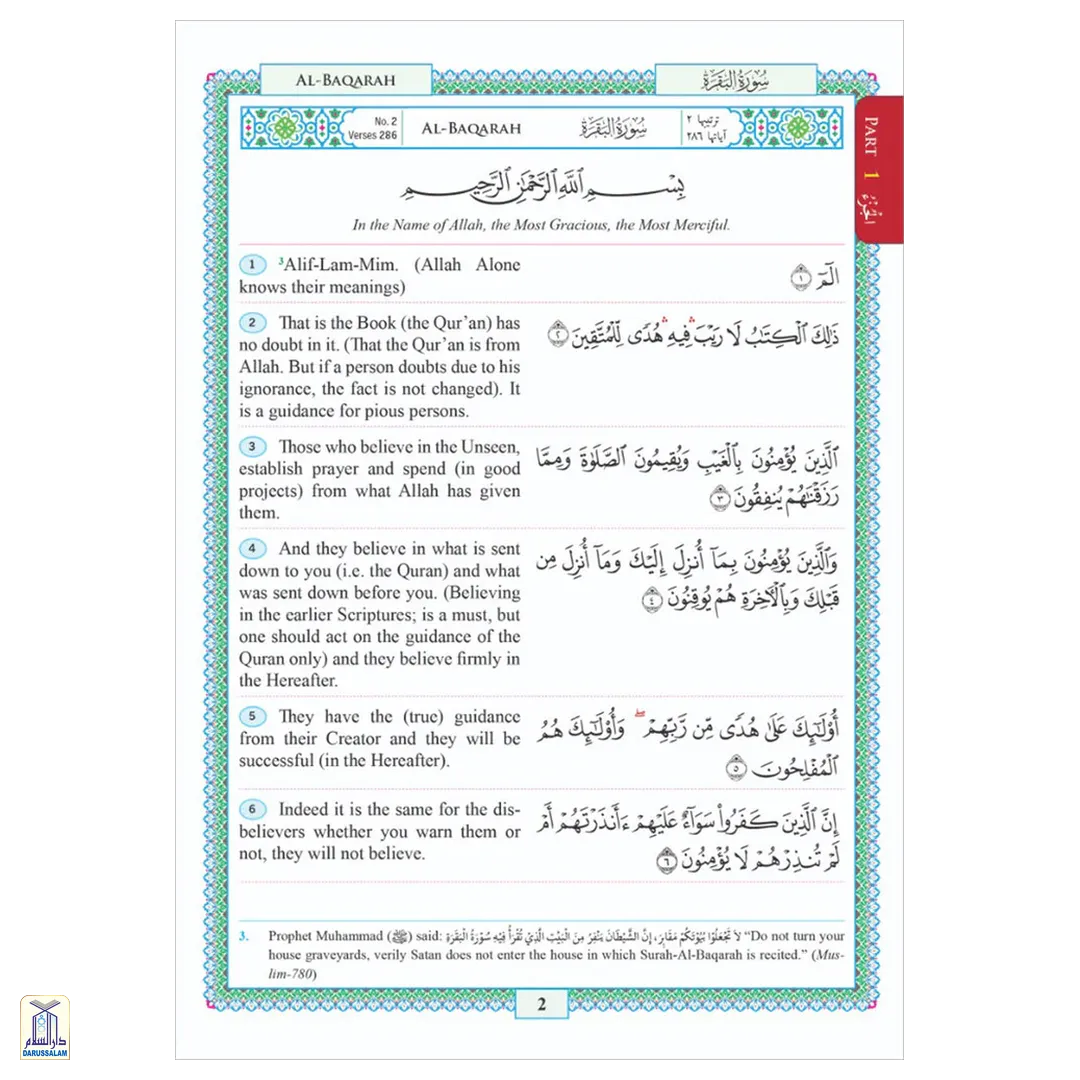 AL-BAQARAH
سُورَةُ البَقَرَة
No. 2
Verses 286
AL-BAQARAH
سُورَةُ البَقَرَة
ترتيبها ٢
آياتها ٢٨٦
PART 1 الجُزْءُ
بِسْمِ اللَّهِ الرَّحْمَٰنِ الرَّحِيمِ
In the Name of Allah, the Most Gracious, the Most Merciful.
1 ³Alif-Lam-Mim. (Allah Alone
knows their meanings)
الٓمٓ ١
2 That is the Book (the Qur’an) has
no doubt in it. (That the Qur’an is from
Allah. But if a person doubts due to his
ignorance, the fact is not changed). It
is a guidance for pious persons.
ذَٰلِكَ ٱلْكِتَٰبُ لَا رَيْبَ ۛ فِيهِ ۛ هُدًى لِّلْمُتَّقِينَ ٢
3 Those who believe in the Unseen,
establish prayer and spend (in good
projects) from what Allah has given
them.
ٱلَّذِينَ يُؤْمِنُونَ بِٱلْغَيْبِ وَيُقِيمُونَ ٱلصَّلَوٰةَ وَمِمَّا
رَزَقْنَٰهُمْ يُنفِقُونَ ٣
4 And they believe in what is sent
down to you (i.e. the Quran) and what
was sent down before you. (Believing
in the earlier Scriptures; is a must, but
one should act on the guidance of the
Quran only) and they believe firmly in
the Hereafter.
وَٱلَّذِينَ يُؤْمِنُونَ بِمَآ أُنزِلَ إِلَيْكَ وَمَآ أُنزِلَ مِن
قَبْلِكَ وَبِٱلْـَٔاخِرَةِ هُمْ يُوقِنُونَ ٤
5 They have the (true) guidance
from their Creator and they will be
successful (in the Hereafter).
أُو۟لَٰٓئِكَ عَلَىٰ هُدًى مِّن رَّبِّهِمْ ۖ وَأُو۟لَٰٓئِكَ هُمُ
ٱلْمُفْلِحُونَ ٥
6 Indeed it is the same for the dis-
believers whether you warn them or
not, they will not believe.
إِنَّ ٱلَّذِينَ كَفَرُوا۟ سَوَآءٌ عَلَيْهِمْ ءَأَنذَرْتَهُمْ أَمْ
لَمْ تُنذِرْهُمْ لَا يُؤْمِنُونَ ٦
3. Prophet Muhammad (ﷺ) said: لاَ تَجْعَلُوْا بُيُوْتَكُمْ مَقَابِرَ، إِنَّ الشَّيْطَانَ يَنْفِرُ مِنَ الْبَيْتِ الَّذِيْ تُقْرَأُ فِيْهِ سُوْرَةُ الْبَقَرَةِ “Do not turn your
house graveyards, verily Satan does not enter the house in which Surah-Al-Baqarah is recited.” (Mus-
lim-780)
2
دارالسلام
DARUSSALAM